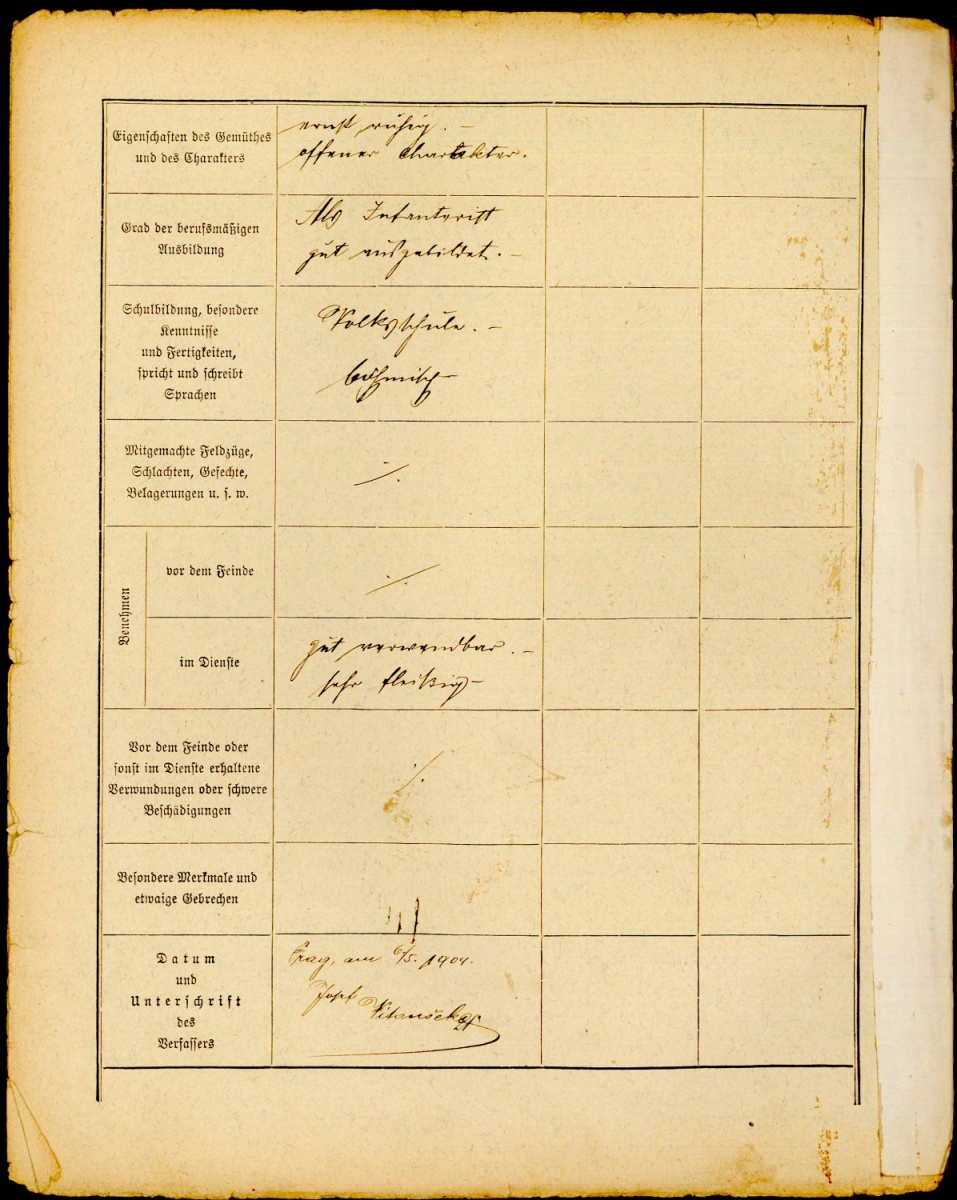 Eigenschaften des Gemüthes
und des Charakters
ernst ruhig. —
offener Charakter.
Grad der berufsmäßigen
Ausbildung
Als Infanterist
gut ausgebildet. —
Schulbildung, besondere
Kenntnisse
und Fertigkeiten,
spricht und schreibt
Sprachen
Volksschule. —
böhmisch —
Mitgemachte Feldzüge,
Schlachten, Gefechte,
Belagerungen u. s. w.
·/.
Benehmen
vor dem Feinde
·/.
im Dienste
gut verwendbar. —
sehr fleißig —
Vor dem Feinde oder
sonst im Dienste erhaltene
Verwundungen oder schwere
Beschädigungen
·/.
Besondere Merkmale und
etwaige Gebrechen
Datum
und
Unterschrift
des
Verfassers
Prag, am 6/5. 1904.
Josef